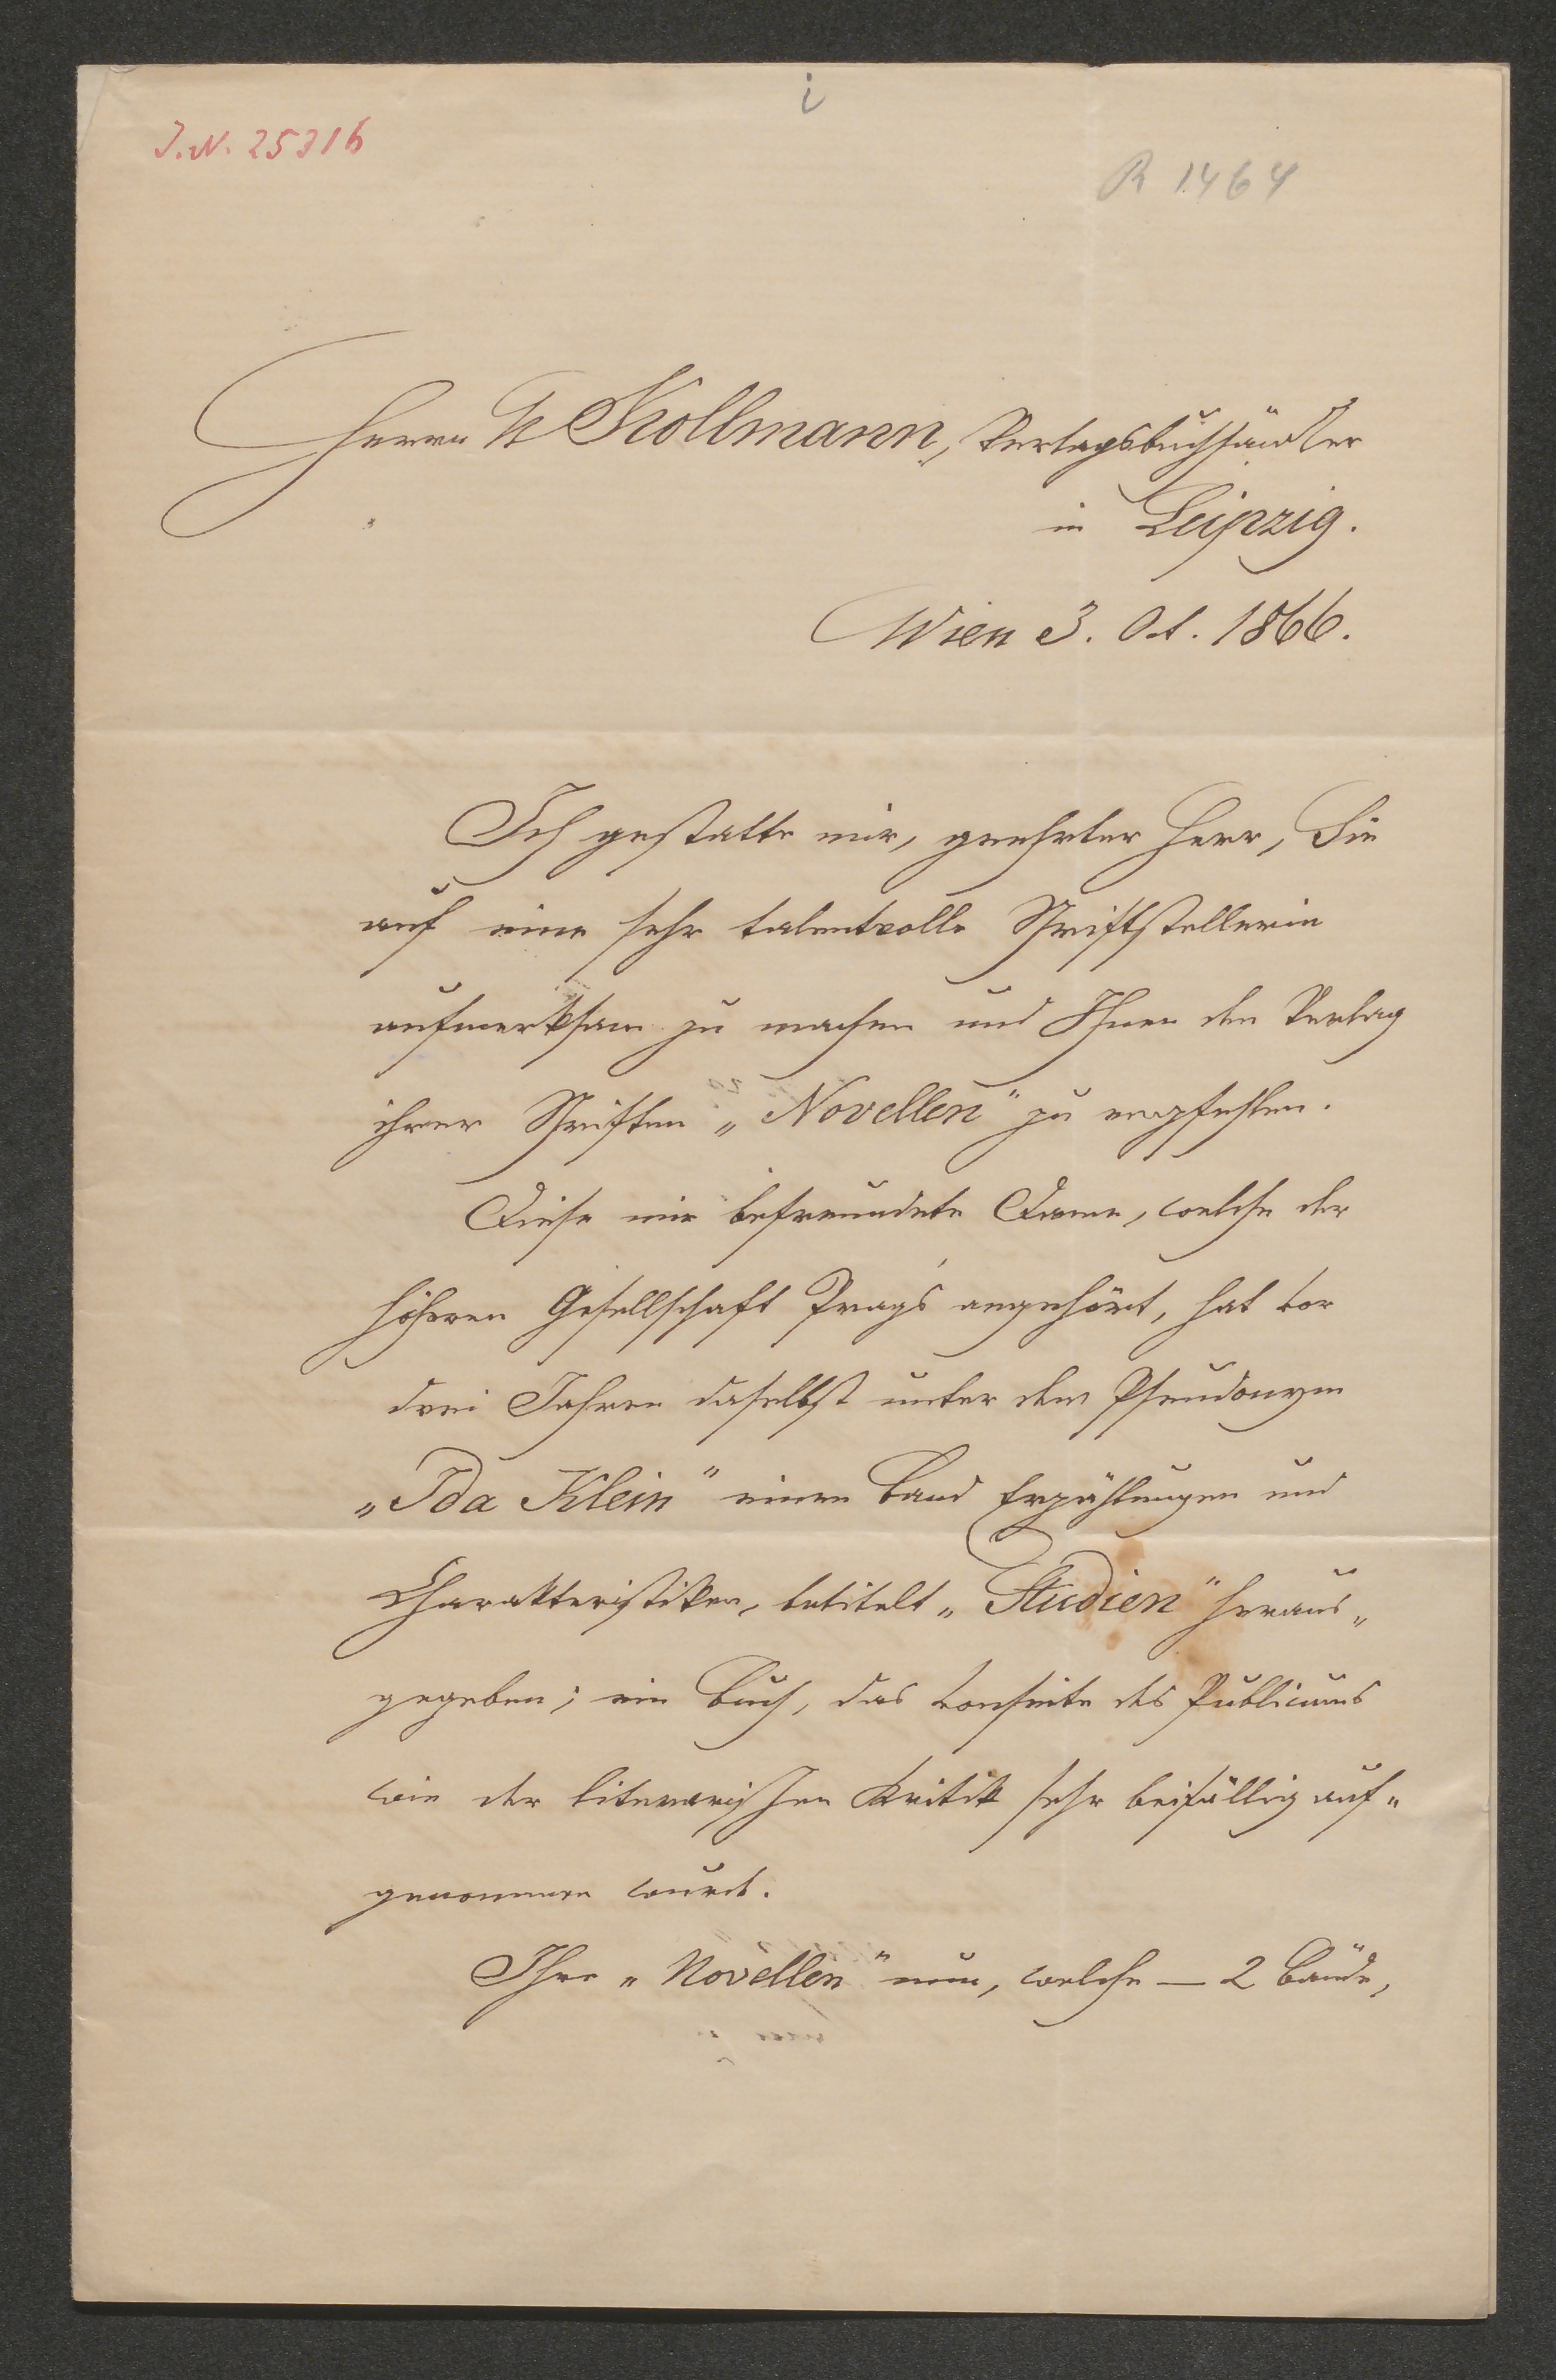 i
J. N. 25316
R 1464
Herrn Kollmann, Verlagsbuchhändler
in Leipzig.
Wien 3. Oct. 1866.
Ich gestatte mir, geehrter Herr, Sie
auf eine sehr talentvolle Schriftstellerin
aufmerksam zu machen und Ihnen den Verlag
ihrer Schriften „Novellen" zu empfehlen.
Diese mir befreundete Dame, welche der
höheren Gesellschaft Prag's angehört, hat vor
drei Jahren daselbst unter dem Pseudonym
„Ida Klein" einen Band Erzählungen und
Charakteristiken, betitelt „Studien" heraus„
gegeben; ein Buch, das vonseite des Publicums
wie der literarischen Kritik sehr beifällig auf„
genommen wurde.
Ihre „Novellen" nun, welche — 2 Bände,